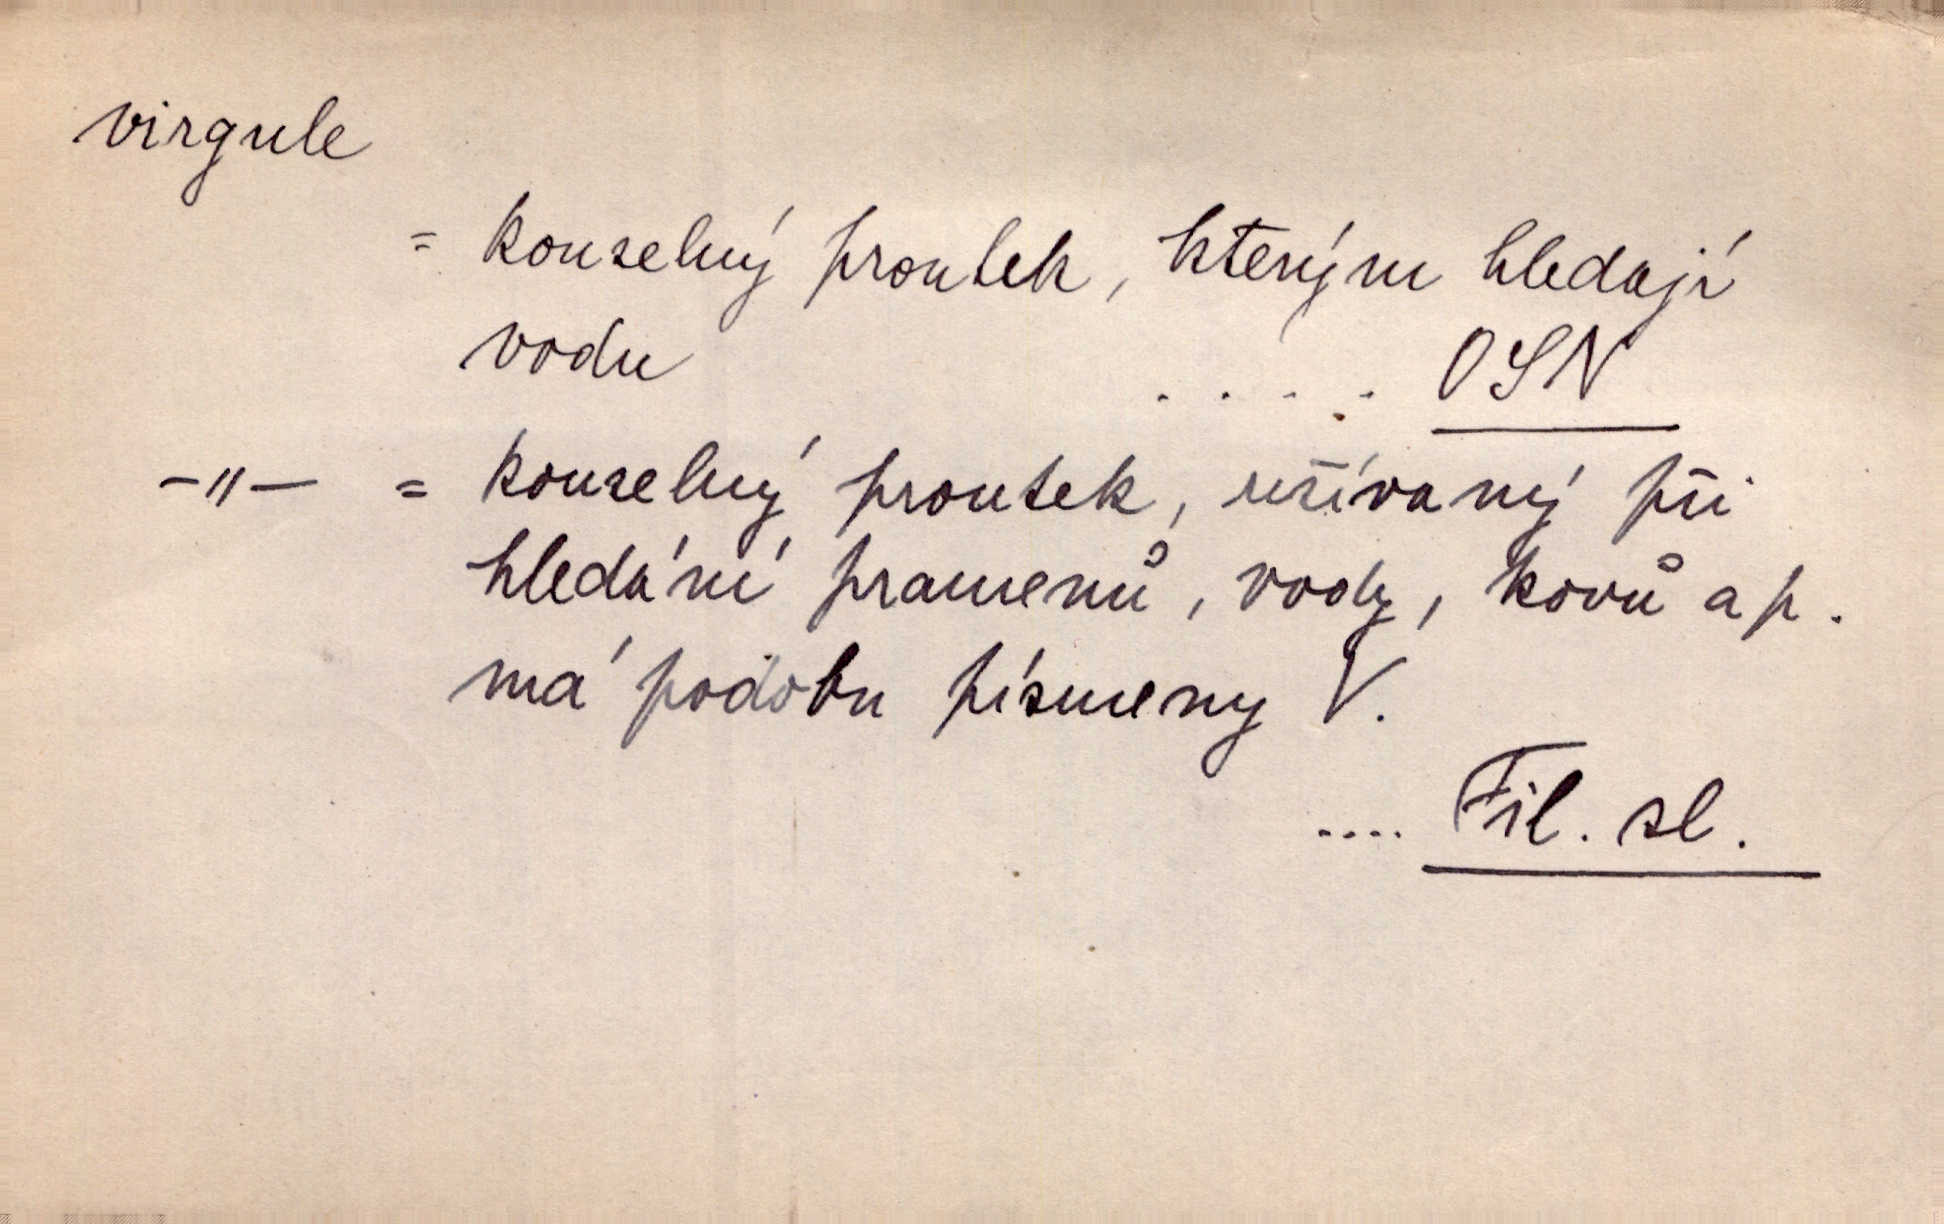 virgule
= kouzelný proutek, kterým hledají
vodu ..... OSN
-"- = kouzelný proutek, užívaný při
hledání pramenů, vody, kovů ap.
má podobu písmeny V.
.... Fil. sl.